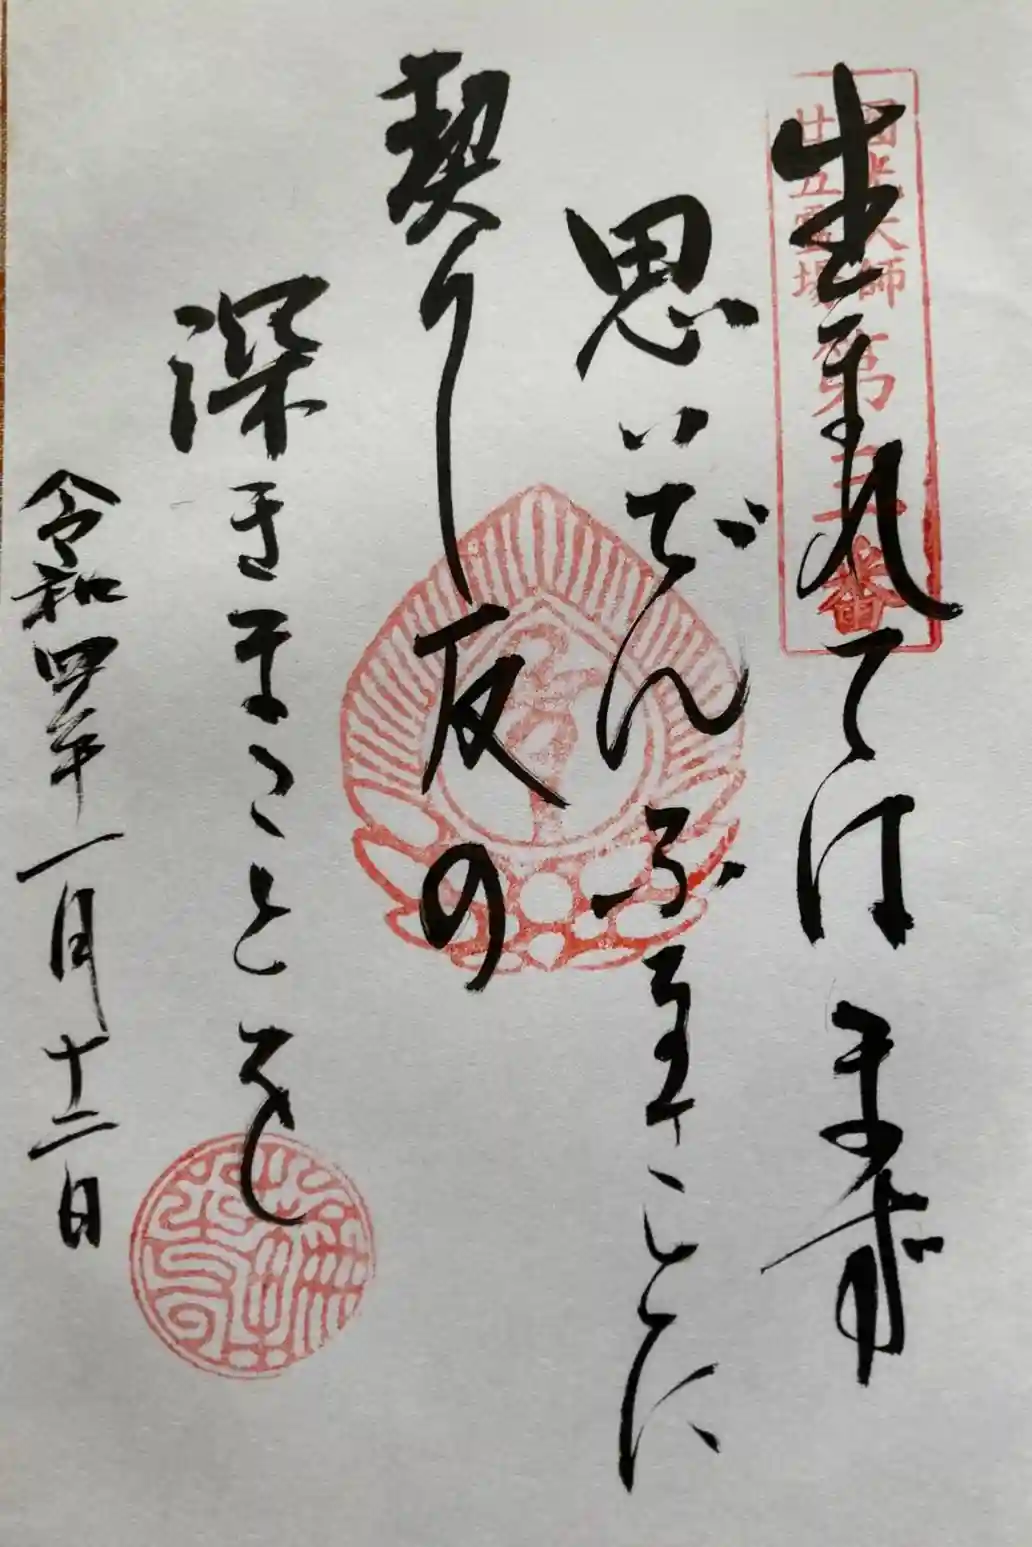 圓光大師
廿五靈場
第三番
生まれてはまず
思いでんふるさとに
契りし友の
深きまことを
令和四年一月十二日